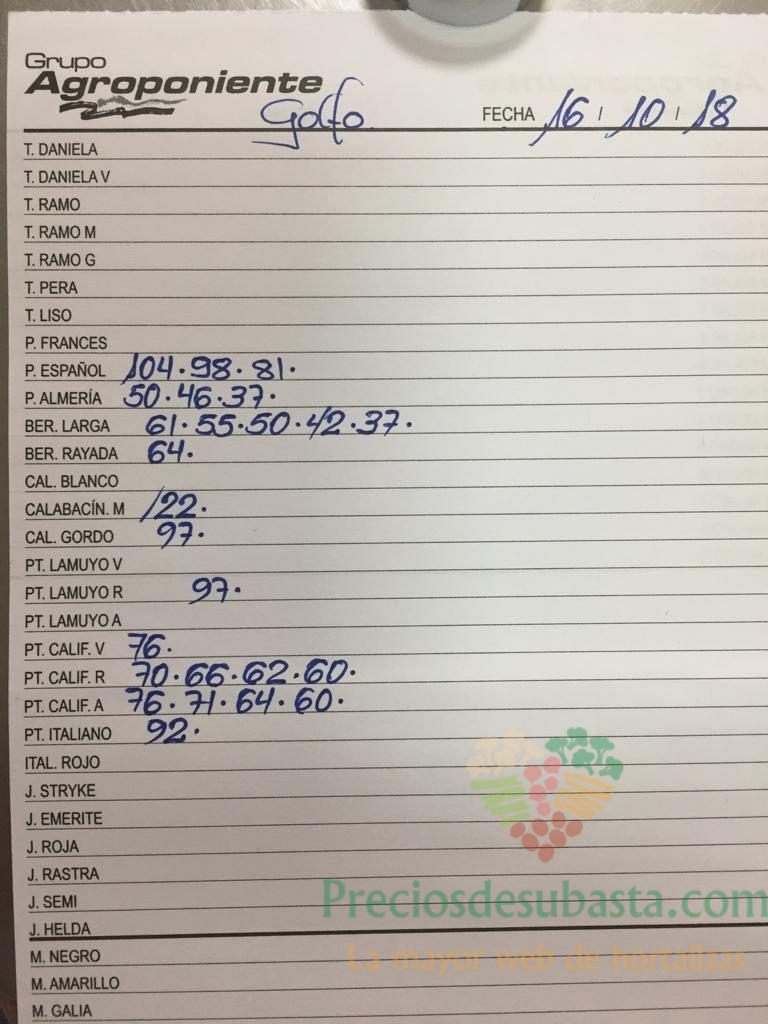 Grupo
Agroponiente
Golfo. FECHA 16 / 10 / 18
T. DANIELA
T. DANIELA V
T. RAMO
T. RAMO M
T. RAMO G
T. PERA
T. LISO
P. FRANCES
P. ESPAÑOL 104.98.81.
P. ALMERÍA 50.46.37.
BER. LARGA 61.55.50.42.37.
BER. RAYADA 64.
CAL. BLANCO
CALABACÍN. M 122.
CAL. GORDO 97.
PT. LAMUYO V
PT. LAMUYO R 97.
PT. LAMUYO A
PT. CALIF. V 76.
PT. CALIF. R 70.66.62.60.
PT. CALIF. A 76.71.64.60.
PT. ITALIANO 92.
ITAL. ROJO
J. STRYKE
J. EMERITE
J. ROJA
J. RASTRA
J. SEMI
J. HELDA
M. NEGRO
M. AMARILLO
M. GALIA
Preciosdesubasta.com
La mayor web de hortalizas